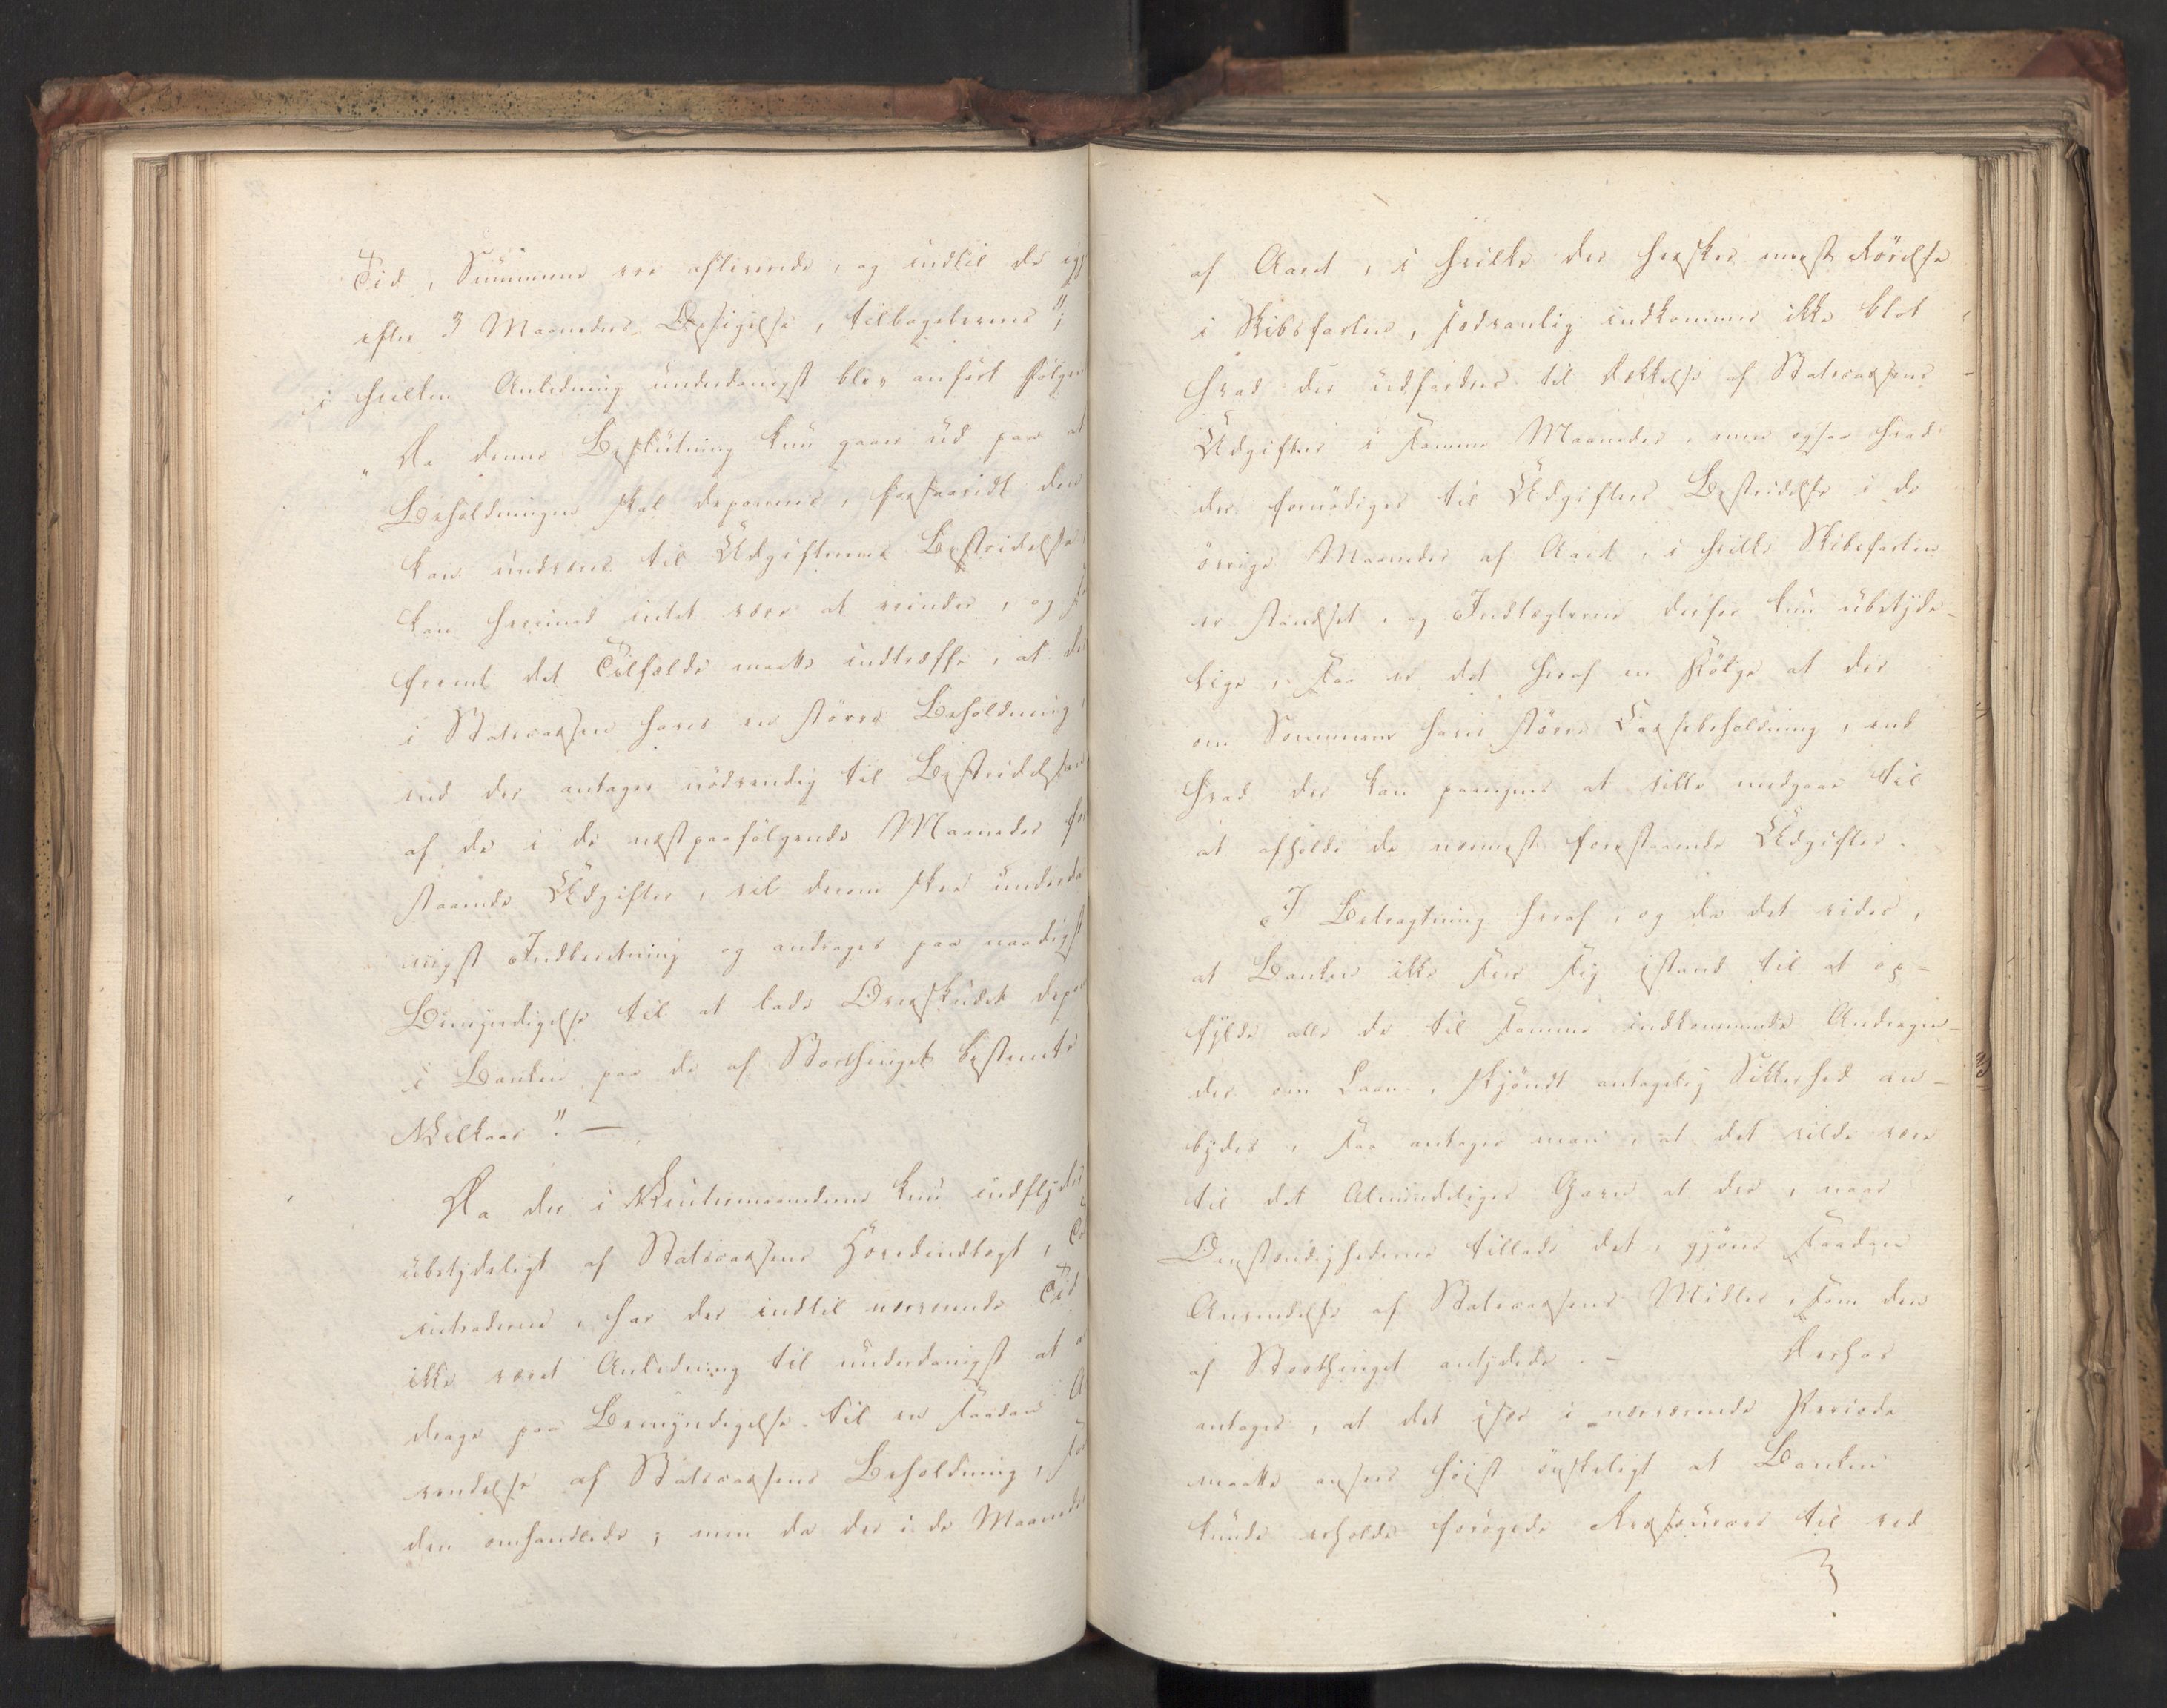 Tid, Summerne ere afleverede, og indtil de igj
efter 3 Maaneders Opsigelse, tilbageleveres";
i hvilken Anledning underdanigst blev anført følgen
"Da denne Beslutning kun gaaer ud paa at
Beholdningen skal deponeres, forsaavidt den
kan undværes til Udgifternes Bestridelse,
kan herimod intet være at erindre, og
fremt det Tilfælde maatte indtræffe, at de
i Statscassen haves en større Beholdning,
end der antages nødvendig til Bestridelsen
af de i de næstpaafølgende Maaneder fo
staaende Udgifter, vil derom skee underda
nigst Indberetning og andrages paa naadigst
Bemyndigelse til at lade Overskudet depo
i Banken paa de af Storthinget bestemte
Vilkaar". —
Da der i Vintermaanederne kun indflyder
ubetydeligt af Statscassens Hovedindtægt,
intraderne, har der indtil nærværende Tid
ikke været Anledning til underdanigst at
drage paa Bemyndigelse til en saadan A
vendelse af Statscassens Beholdning,
den omhandlede; men da der i de Maaneder
af Aaret, i hvilke der hersker meest Rørelse
i Skibsfarten, sædvanlig indkommer ikke blot
hvad der udfordres til Dækkelse af Statscassens
Udgifter i samme Maaneder, men ogsaa hvad
der fornødiges til Udgifters Bestridelse i de
øvrige Maaneder af Aaret, i hvilke Skibsfarten
er standset, og Indtægterne derfor kun ubetyde-
lige, saa er det heraf en Følge at der
om Sommeren haves større Cassebeholdning, end
hvad der kan paaregnes at ville medgaae til
at afholde de nærmest forestaaende Udgifter.
I Betragtning heraf, og da det vides,
at Banken ikke seer sig istand til at op-
fylde alle de til samme indkommende Andragen-
der om Laan, skjøndt antagelig Sikkerhed an-
bydes, saa antages man, at det vilde være
til det Almindeliges Gavn at der, naar
Omstændighederne tillade det, gjøres saadan
Anvendelse af Statscassens Midler, som den
af Storthinget antydede. – Derhos
antages, at det især i nærværende Periode
maatte ansees høist ønskeligt at Banken
kunde erholde forøgede Ressourcer til ved